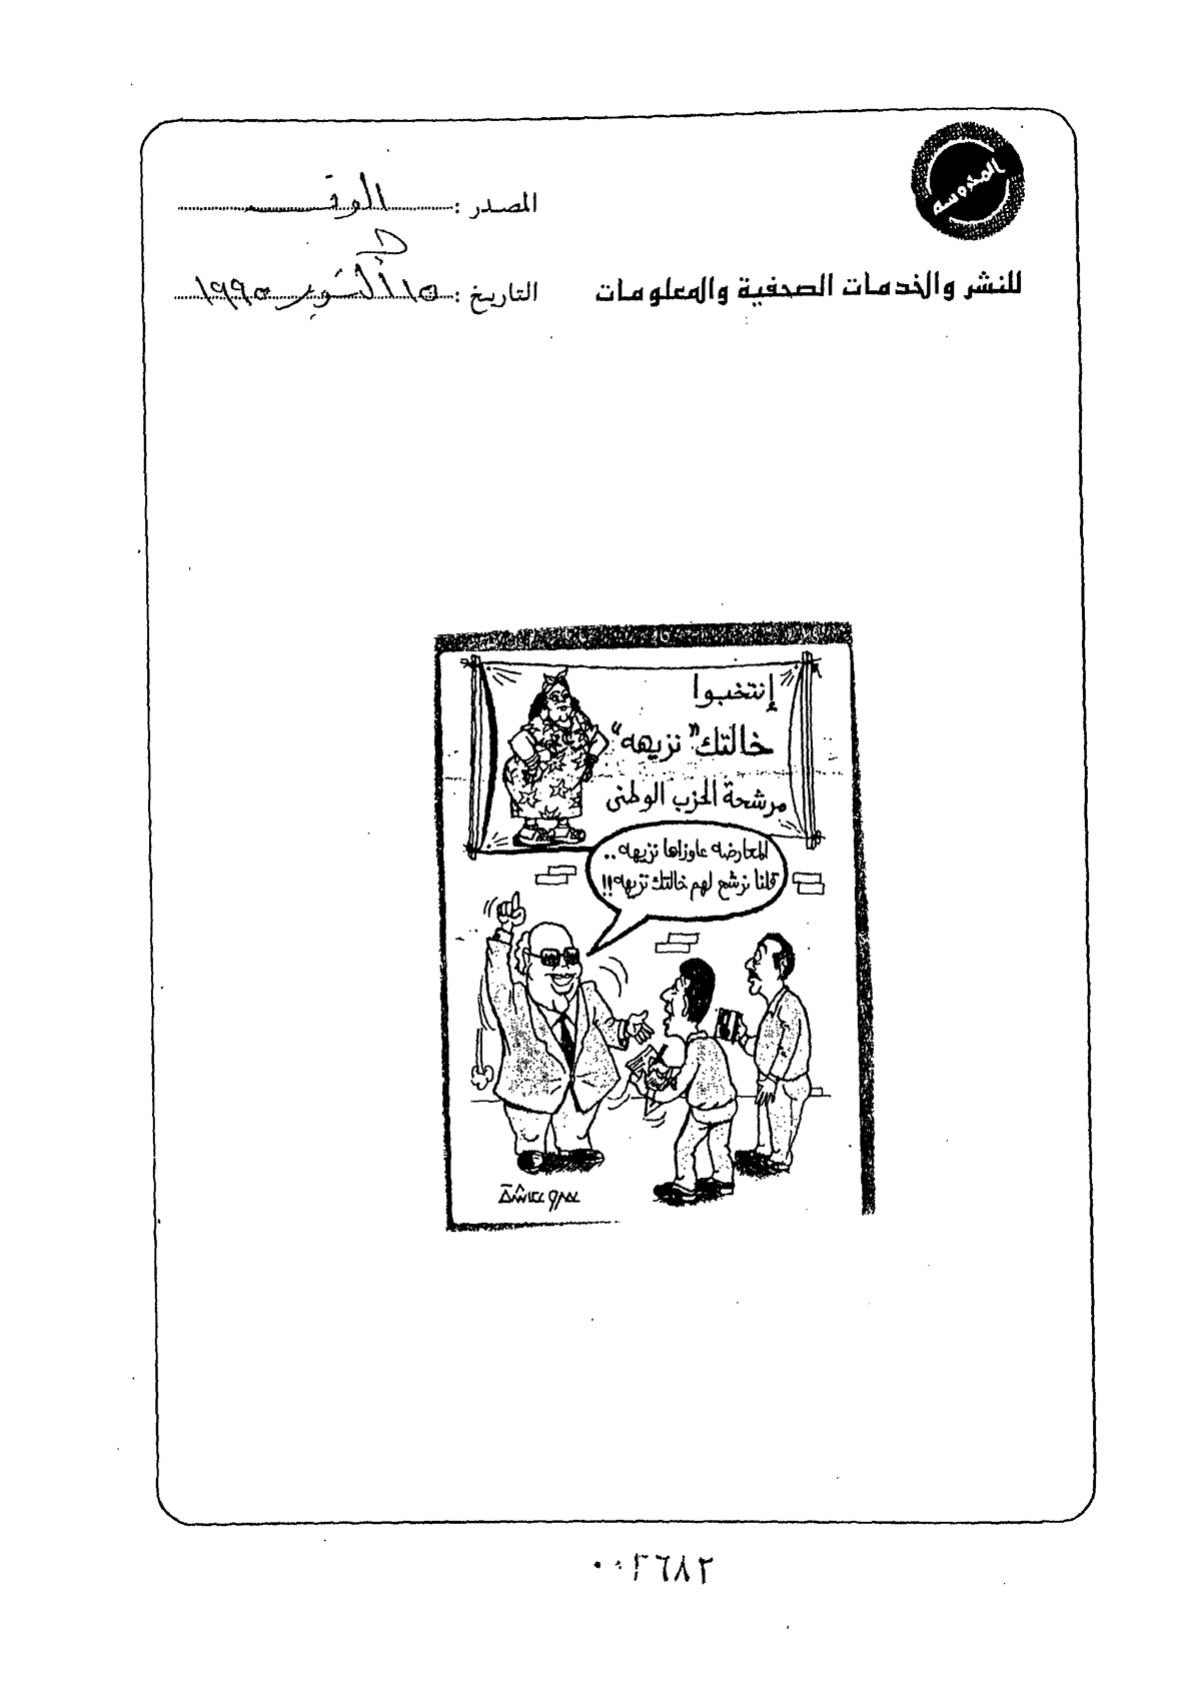 المحروسة
للنشر والخدمات الصحفية والمعلومات
المصدر : الوفد
التاريخ : ١٥ أكتوبر ١٩٩٥
إنتخبوا
خالتك "نزيهه"
مرشحة الحزب الوطنى
المعارضه عاوزاها نزيهه ..
قلنا نرشح لهم خالتك نزيهه !!
عمرو عكاشة